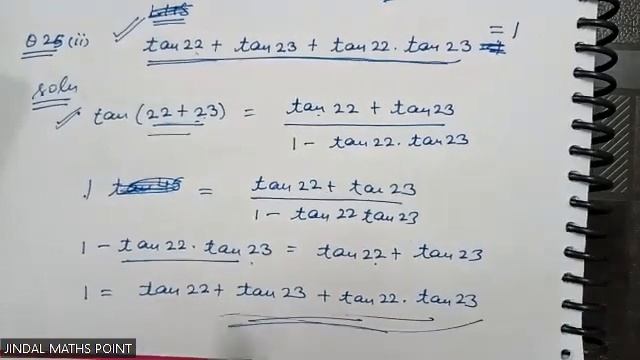 = 1
Q 25 (ii) tan 22 + tan 23 + tan 22 . tan 23
soln
tan (22 + 23) = tan 22 + tan 23
1 - tan 22 . tan 23
1 = tan 22 + tan 23
1 - tan 22 tan 23
1 - tan 22 . tan 23 = tan 22 + tan 23
1 = tan 22 + tan 23 + tan 22 . tan 23
JINDAL MATHS POINT